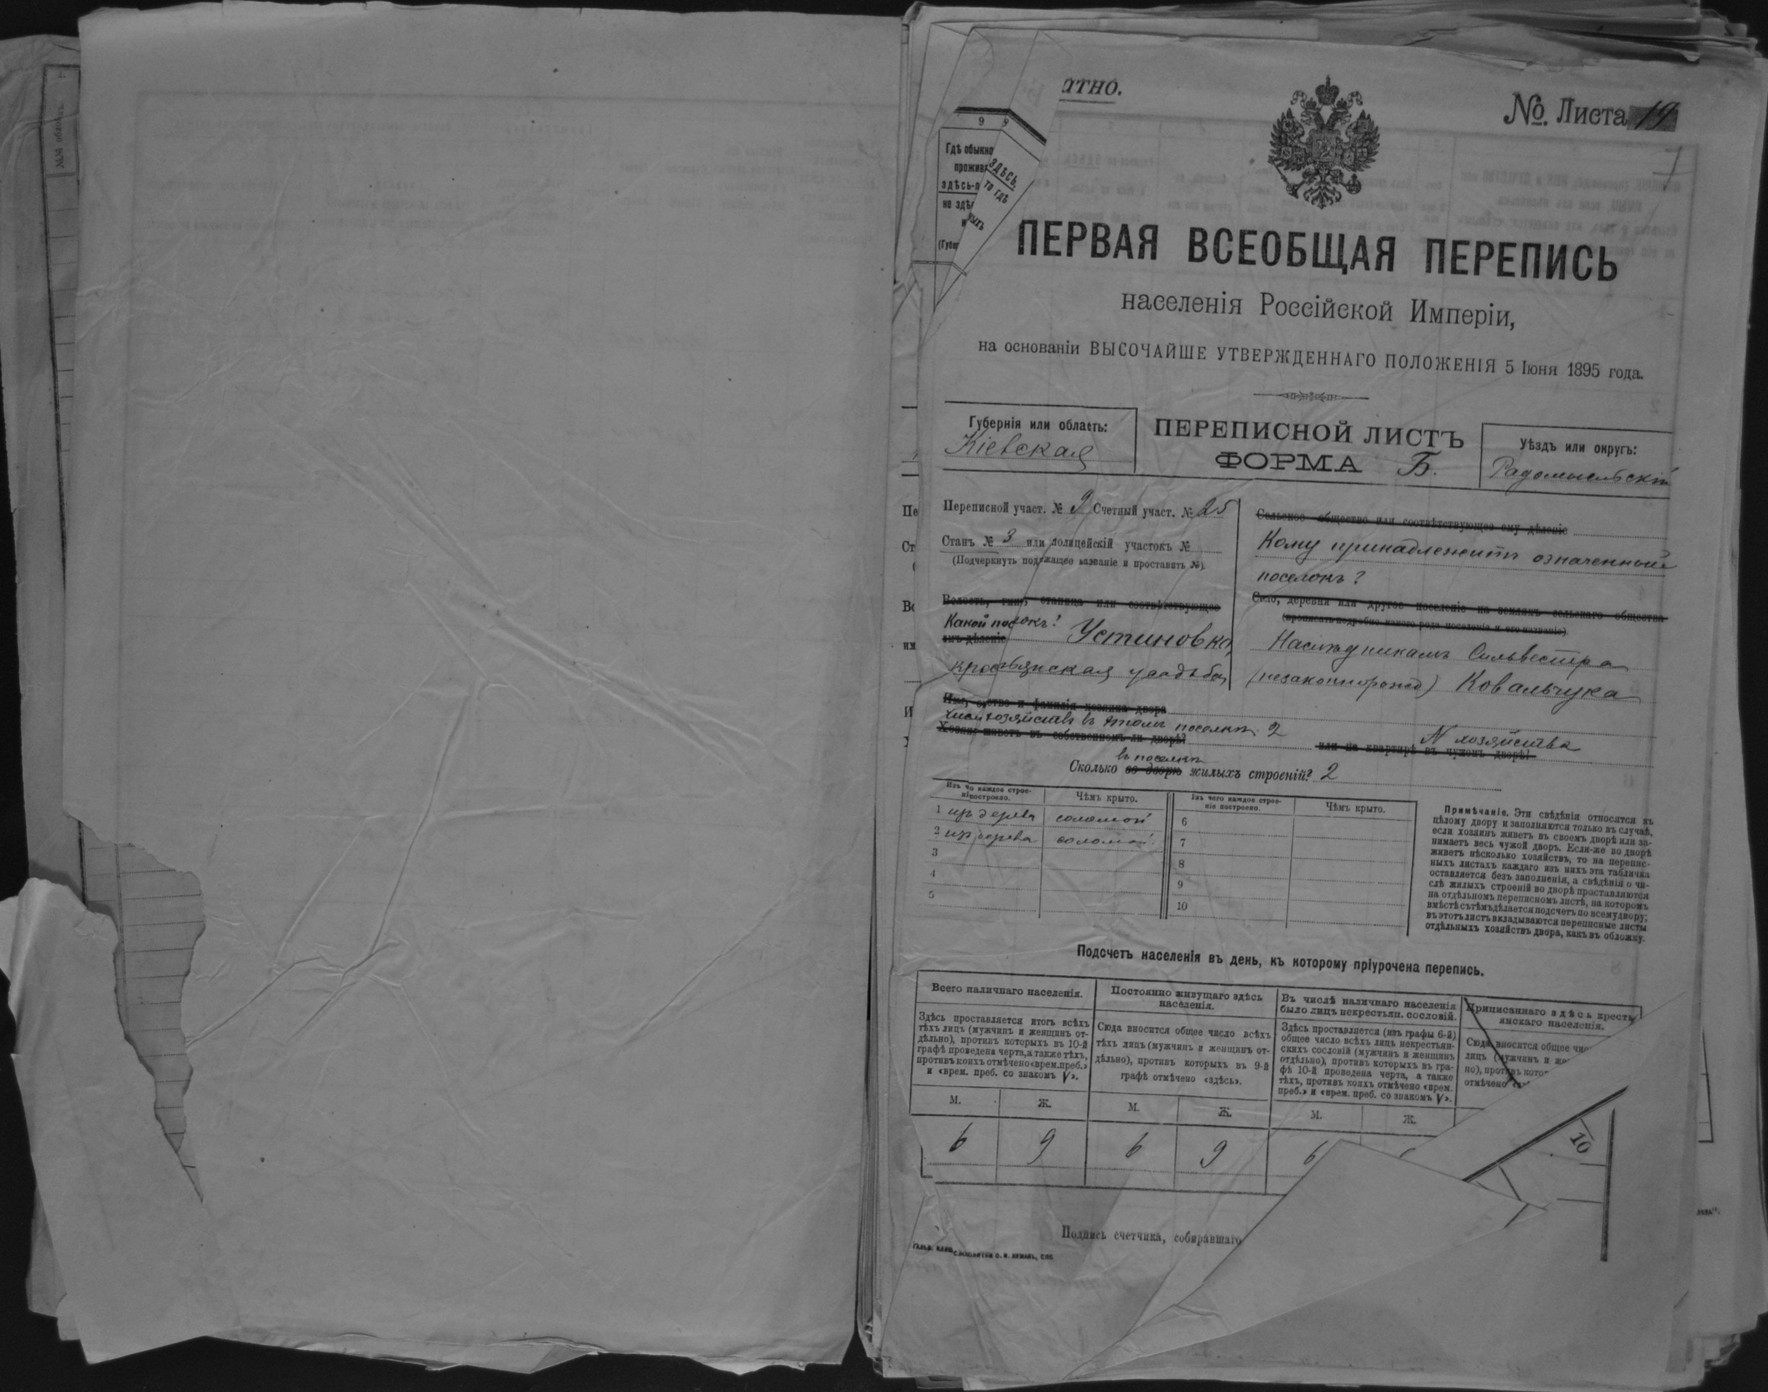 атно.
№ Листа 19
ПЕРВАЯ ВСЕОБЩАЯ ПЕРЕПИСЬ
населенія Россійской Имперіи,
на основаніи ВЫСОЧАЙШЕ УТВЕРЖДЕННАГО ПОЛОЖЕНІЯ 5 Іюня 1895 года.
Губернія или область:
Кіевская
ПЕРЕПИСНОЙ ЛИСТЪ
ФОРМА Б.
Уѣздъ или округъ:
Радомысльскій
Переписной участ. № 9 Счетный участ. № 25
Станъ № 3 или полицейскій участокъ №
(Подчеркнуть подлежащее названіе и проставить №)
Волость, гмина, станица или соотвѣтствующее
Какой поселокъ?
имъ дѣленіе
Устиновка,
крестьянская усадьба
Сельское общество или соотвѣтствующее ему дѣленіе
Кому принадлежитъ означенный
поселокъ?
Село, деревня или другое поселеніе на земляхъ сельскаго общества
(прописать подробно какого рода поселеніе и его названіе)
Наслѣдникамъ Сильвестра
(незаконнорожд) Ковальчука
Имя, отчество и фамилія хозяина двора
Число хозяйствъ въ этомъ поселкѣ 2
Хозяинъ живетъ въ собственномъ ли дворѣ?
или на квартирѣ въ чужомъ дворѣ?
N хозяйства
въ поселкѣ
Сколько во дворѣ жилыхъ строеній? 2
Изъ чего каждое строеніе построено.
Чѣмъ крыто.
1 изъ дерева соломой
2 изъ дерева соломой
3
4
5
Изъ чего каждое строеніе построено.
Чѣмъ крыто.
6
7
8
9
10
Примѣчаніе. Эти свѣдѣнія относятся къ
цѣлому двору и заполняются только въ случаѣ,
если хозяинъ живетъ въ своемъ дворѣ или за-
нимаетъ весь чужой дворъ. Если-же во дворѣ
живетъ нѣсколько хозяйствъ, то на перепис-
ныхъ листахъ каждаго изъ нихъ эта табличка
оставляется безъ заполненія, а свѣдѣнія о чи-
слѣ жилыхъ строеній во дворѣ проставляются
на отдѣльномъ переписномъ листѣ, на которомъ
вмѣстѣ съ тѣмъ дѣлается подсчетъ по всему двору;
въ этотъ листъ вкладываются переписные листы
отдѣльныхъ хозяйствъ двора, какъ въ обложку.
Подсчетъ населенія въ день, къ которому пріурочена перепись.
Всего наличнаго населенія.
Здѣсь проставляется итогъ всѣхъ
тѣхъ лицъ (мужчинъ и женщинъ от-
дѣльно), противъ которыхъ въ 10-й
графѣ проведена черта, а также тѣхъ,
противъ коихъ отмѣчено «врем. преб.»
и «врем. преб. со знакомъ V».
М. Ж.
6 9
Постоянно живущаго здѣсь
населенія.
Сюда вносится общее число всѣхъ
тѣхъ лицъ (мужчинъ и женщинъ от-
дѣльно), противъ которыхъ въ 9-й
графѣ отмѣчено «здѣсь».
М. Ж.
6 9
Въ числѣ наличнаго населенія
было лицъ некрестьян. сословій.
Здѣсь проставляется (изъ графы 6-й)
общее число всѣхъ лицъ некрестьян-
скихъ сословій (мужчинъ и женщинъ
отдѣльно), противъ которыхъ въ гра-
фѣ 10-й проведена черта, а также
тѣхъ, противъ коихъ отмѣчено «врем.
преб.» и «врем. преб. со знакомъ V».
М. Ж.
Приписаннаго здѣсь кресть-
янскаго населенія.
Сюда вносится общее
лицъ (мужчинъ и
но), противъ
отмѣчено
10
Подпись счетчика, собиравшаго